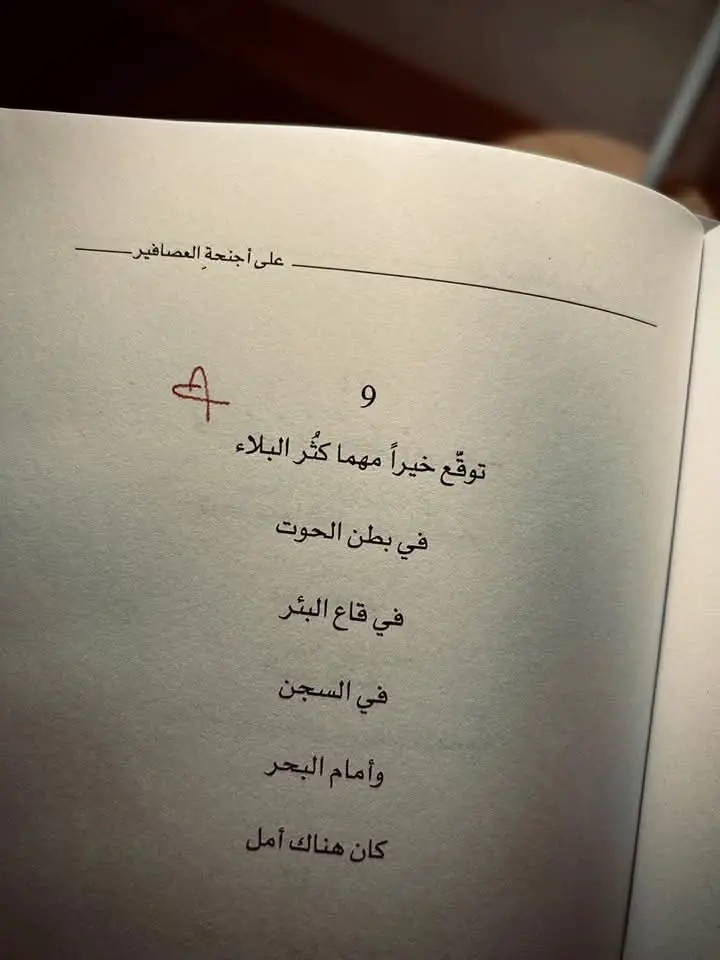 على أجنحةِ العصافير
9
توقّع خيراً مهما كثُر البلاء
في بطن الحوت
في قاع البئر
في السجن
وأمام البحر
كان هناك أمل